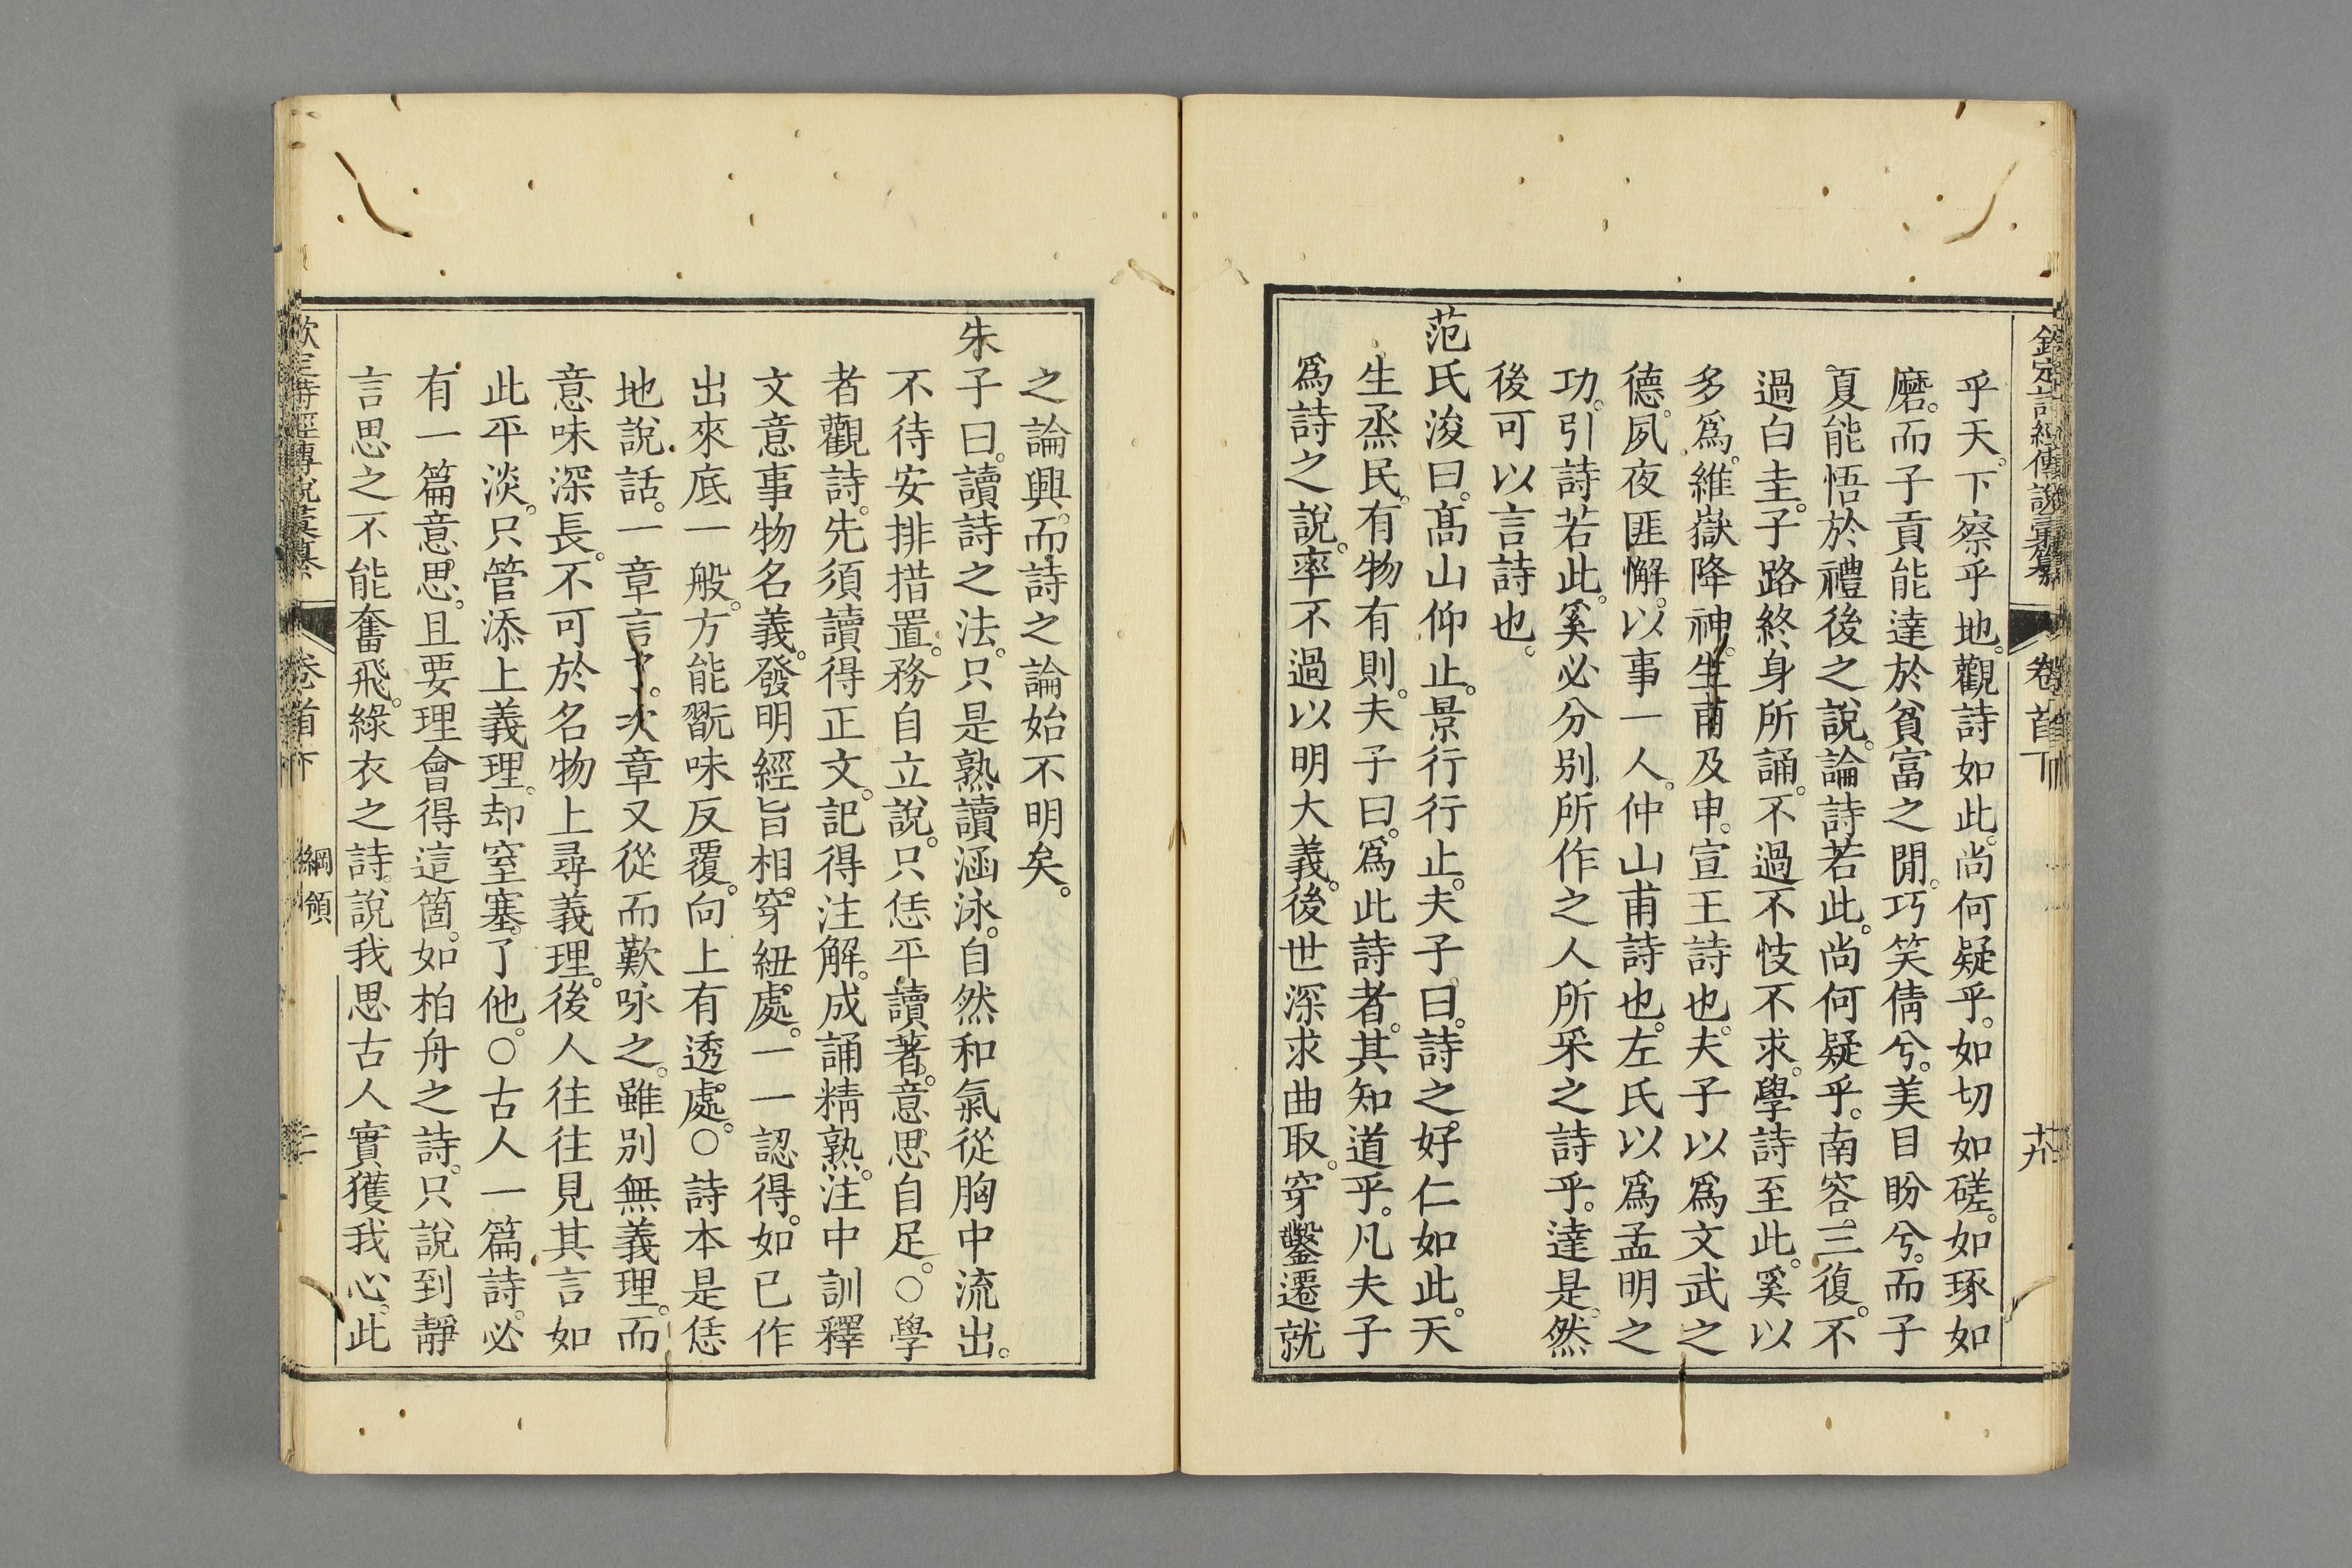 欽定詩經傳說彙纂 卷首下
乎天。下察乎地。觀詩如此。尚何疑乎。如切如磋。如琢如
磨。而子貢能達於貧富之閒。巧笑倩兮。美目盼兮。而子
夏能悟於禮後之說。論詩若此。尚何疑乎。南容三復。不
過白圭。子路終身所誦。不過不忮不求。學詩至此。奚以
多爲。維嶽降神。生甫及申。宣王詩也。夫子以爲文武之
德。夙夜匪懈。以事一人。仲山甫詩也。左氏以爲孟明之
功。引詩若此。奚必分別所作之人所采之詩乎。達是。然
後可以言詩也。
范氏浚曰。高山仰止。景行行止。夫子曰。詩之好仁如此。天
生烝民。有物有則。夫子曰。爲此詩者。其知道乎。凡夫子
爲詩之說。率不過以明大義。後世深求曲取。穿鑿遷就
之論興。而詩之論始不明矣。
朱子曰。讀詩之法。只是熟讀涵泳。自然和氣從胸中流出。
不待安排措置。務自立說。只恁平讀著。意思自足。○學
者觀詩。先須讀得正文。記得注解。成誦精熟。注中訓釋
文意事物名義。發明經旨相穿紐處。一一認得。如己作
出來底一般。方能翫味反覆。向上有透處。○詩本是恁
地說話。一章言了。次章又從而歎咏之。雖別無義理。而
意味深長。不可於名物上尋義理。後人往往見其言如
此平淡。只管添上義理。却窒塞了他。○古人一篇詩。必
有一篇意思。且要理會得這箇。如柏舟之詩。只說到靜
言思之不能奮飛。綠衣之詩。說我思古人實獲我心。此
欽定詩經傳說彙纂 卷首下 綱領